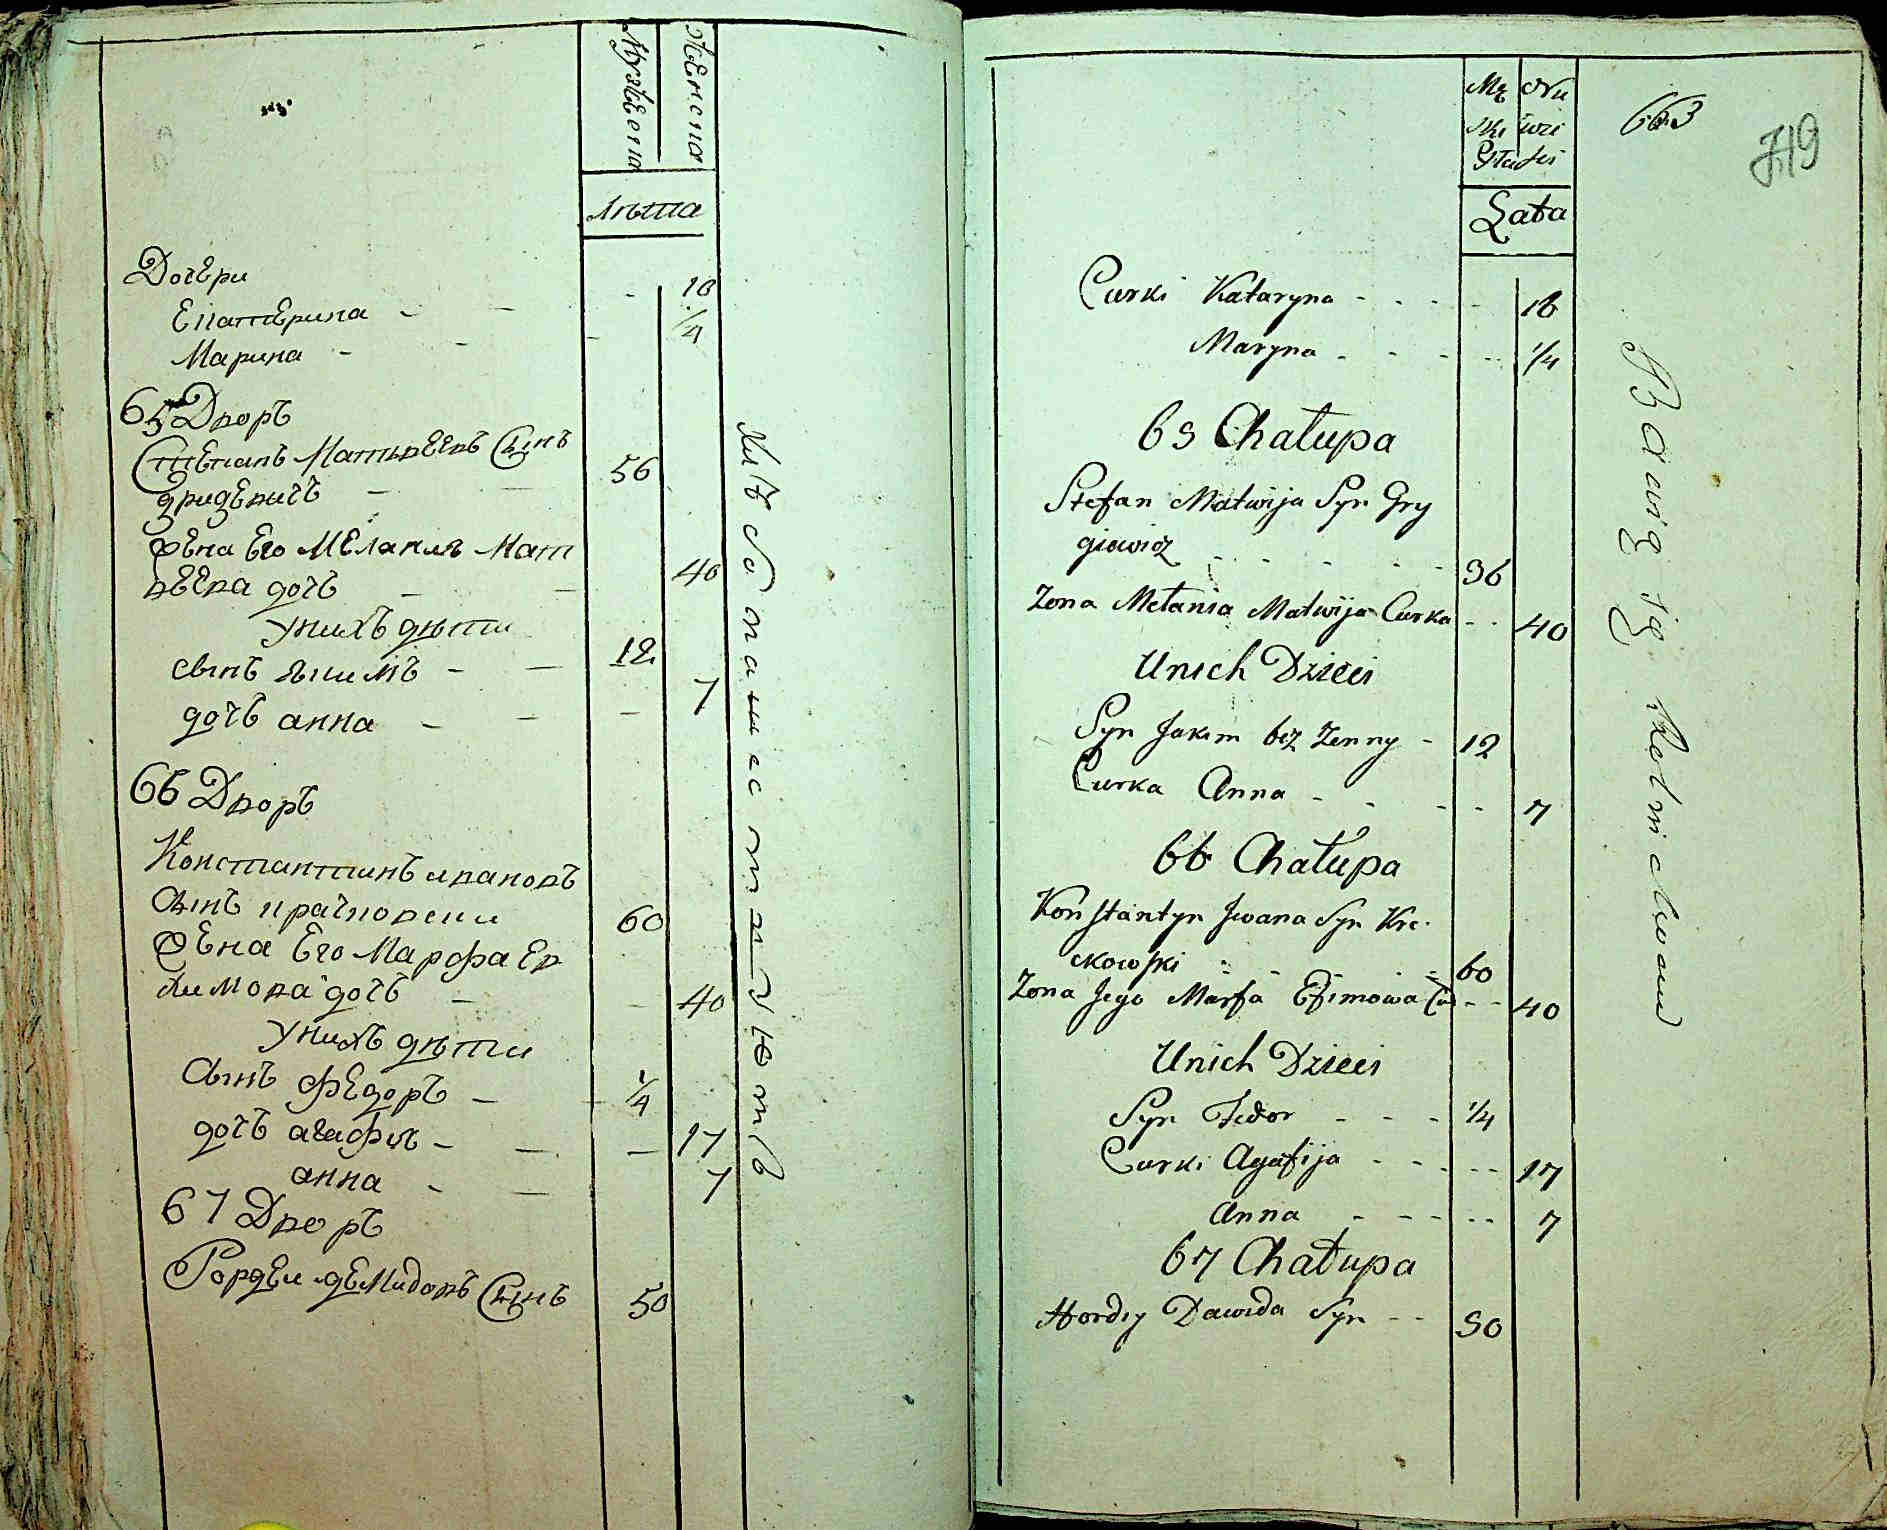 Мужеска
Женска
Лѣта
Дочери
Екатерина - - - 18
Марина - - - 1/4
65 Дворъ
Степанъ Матвеевъ Сынъ
Гридзевичъ - - 56
Жена Его Мелания Мат
веева дочь - - 40
У нихъ дѣти
сынъ Якимъ - - 12
дочь анна - - - 7
66 Дворъ
Константинъ ивановъ
Сынъ 60
Жена Его Марфа Еѳ
химова дочь - - 40
У нихъ дѣти
Сынъ Федоръ - - 1/4
дочь агафия - - - 17
анна - - 7
67 Дворъ
Гордеи демидовъ Сынъ 50
Mę Nie
ski wzi
Stuki
Łata
663
719
Curki Kataryna - - - - - 18
Maryna - - - - 1/4
65 Chałupa
Stefan Matwija Syn Gry
giewicz - - - - 56
Zona Mełania Matwija Curka - - 40
Unich Dzieci
Syn Jakim bez Zenny - 12
Curka Anna - - - - 7
66 Chałupa
Konstantyn Jwana Syn Kre
ckowski - - - 60
Zona Jego Marfa Efimowa Cu - - 40
Unich Dzieci
Syn Fedor - - - 1/4
Curki Agafija - - - - - 17
Anna - - - - - 7
67 Chałupa
Hordiy Dawida Syn - - 50